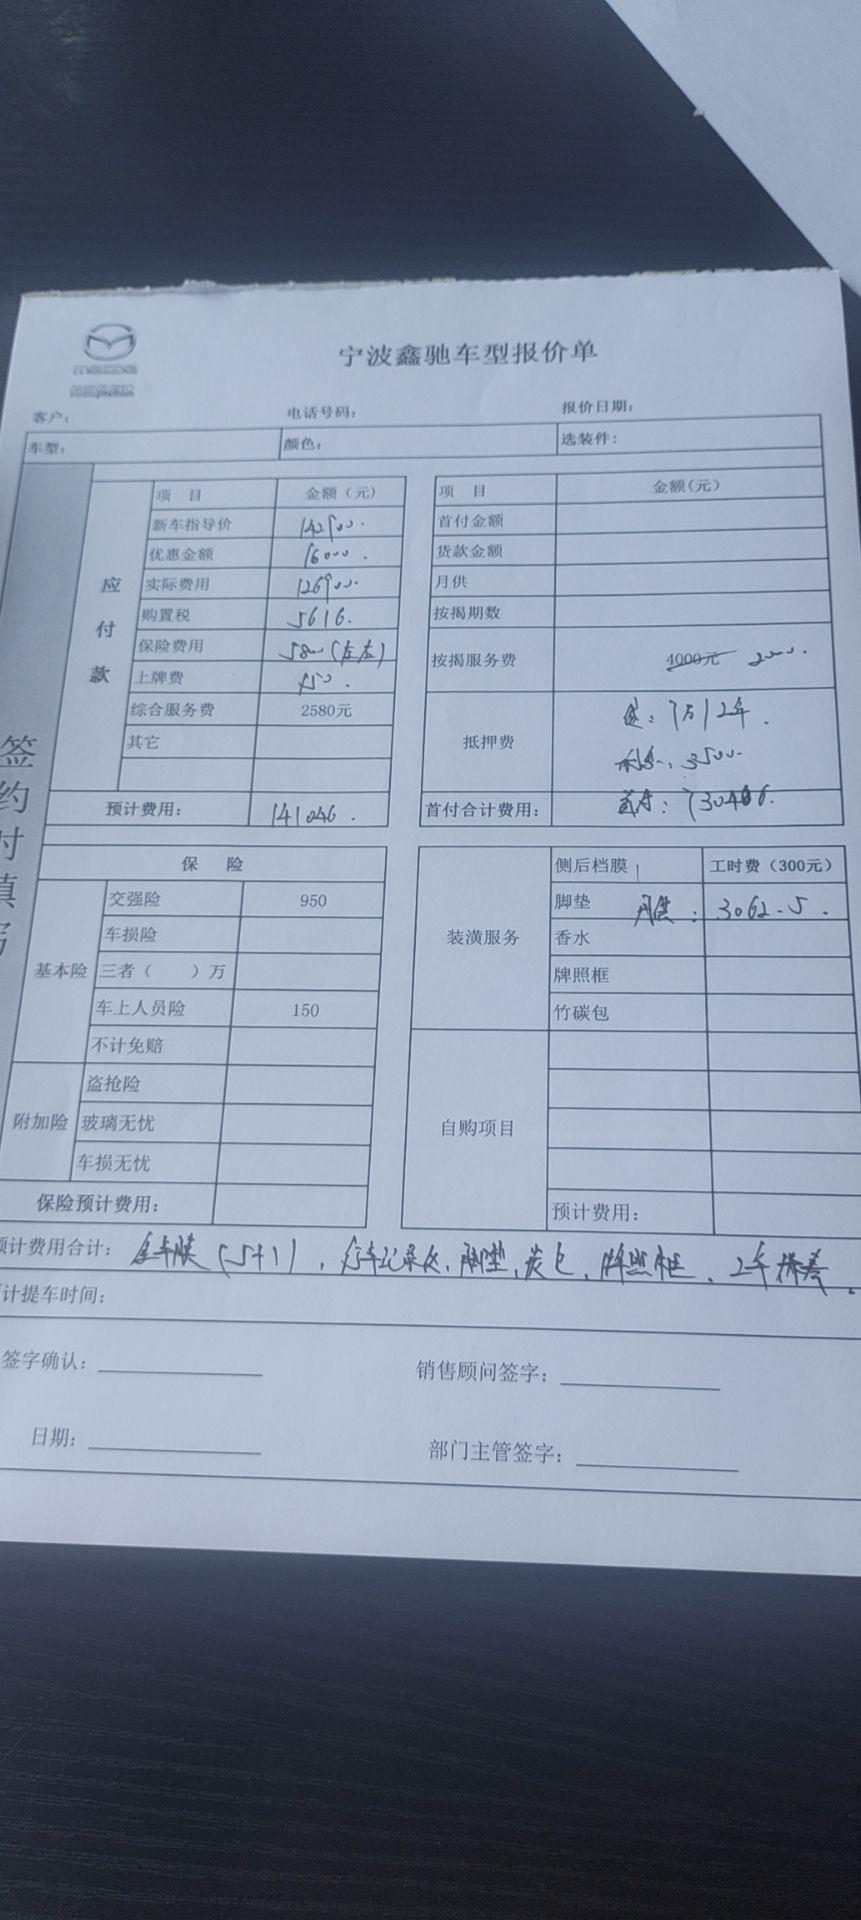 mazda
宁波鑫驰车型报价单
客户： 电话号码： 报价日期：
车型： 颜色： 选装件：
签约时填写
应付款
项 目 金额（元）
新车指导价 142900.
优惠金额 16000.
实际费用 126900.
购置税 5616.
保险费用 5800（左右）
上牌费 150.
综合服务费 2580元
其它
预计费用： 141046.
项 目 金额(元)
首付金额
货款金额
月供
按揭期数
按揭服务费 4000元 2000.
抵押费 贷：7万/2年.
利息：3500.
首付合计费用： 首付：73046.
保 险
基本险
交强险 950
车损险
三者（ ）万
车上人员险 150
不计免赔
附加险
盗抢险
玻璃无忧
车损无忧
保险预计费用：
装潢服务
侧后档膜 工时费（300元）
脚垫 月供：3062.5.
香水
牌照框
竹碳包
自购项目
预计费用：
预计费用合计： 全车膜（5+1），行车记录仪、脚垫，炭包、牌照框、2年保养。
计提车时间：
签字确认： 销售顾问签字：
日期： 部门主管签字：